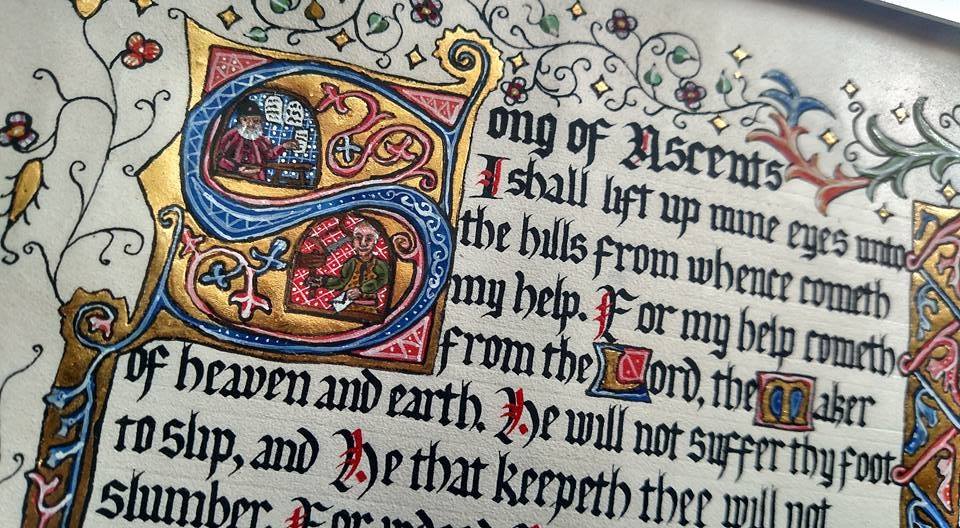 Song of Ascents
I shall lift up mine eyes unto
the hills from whence cometh
my help. For my help cometh
from the Lord, the Maker
of heaven and earth. He will not suffer thy foot
to slip, and He that keepeth thee will not
slumber. For indeed